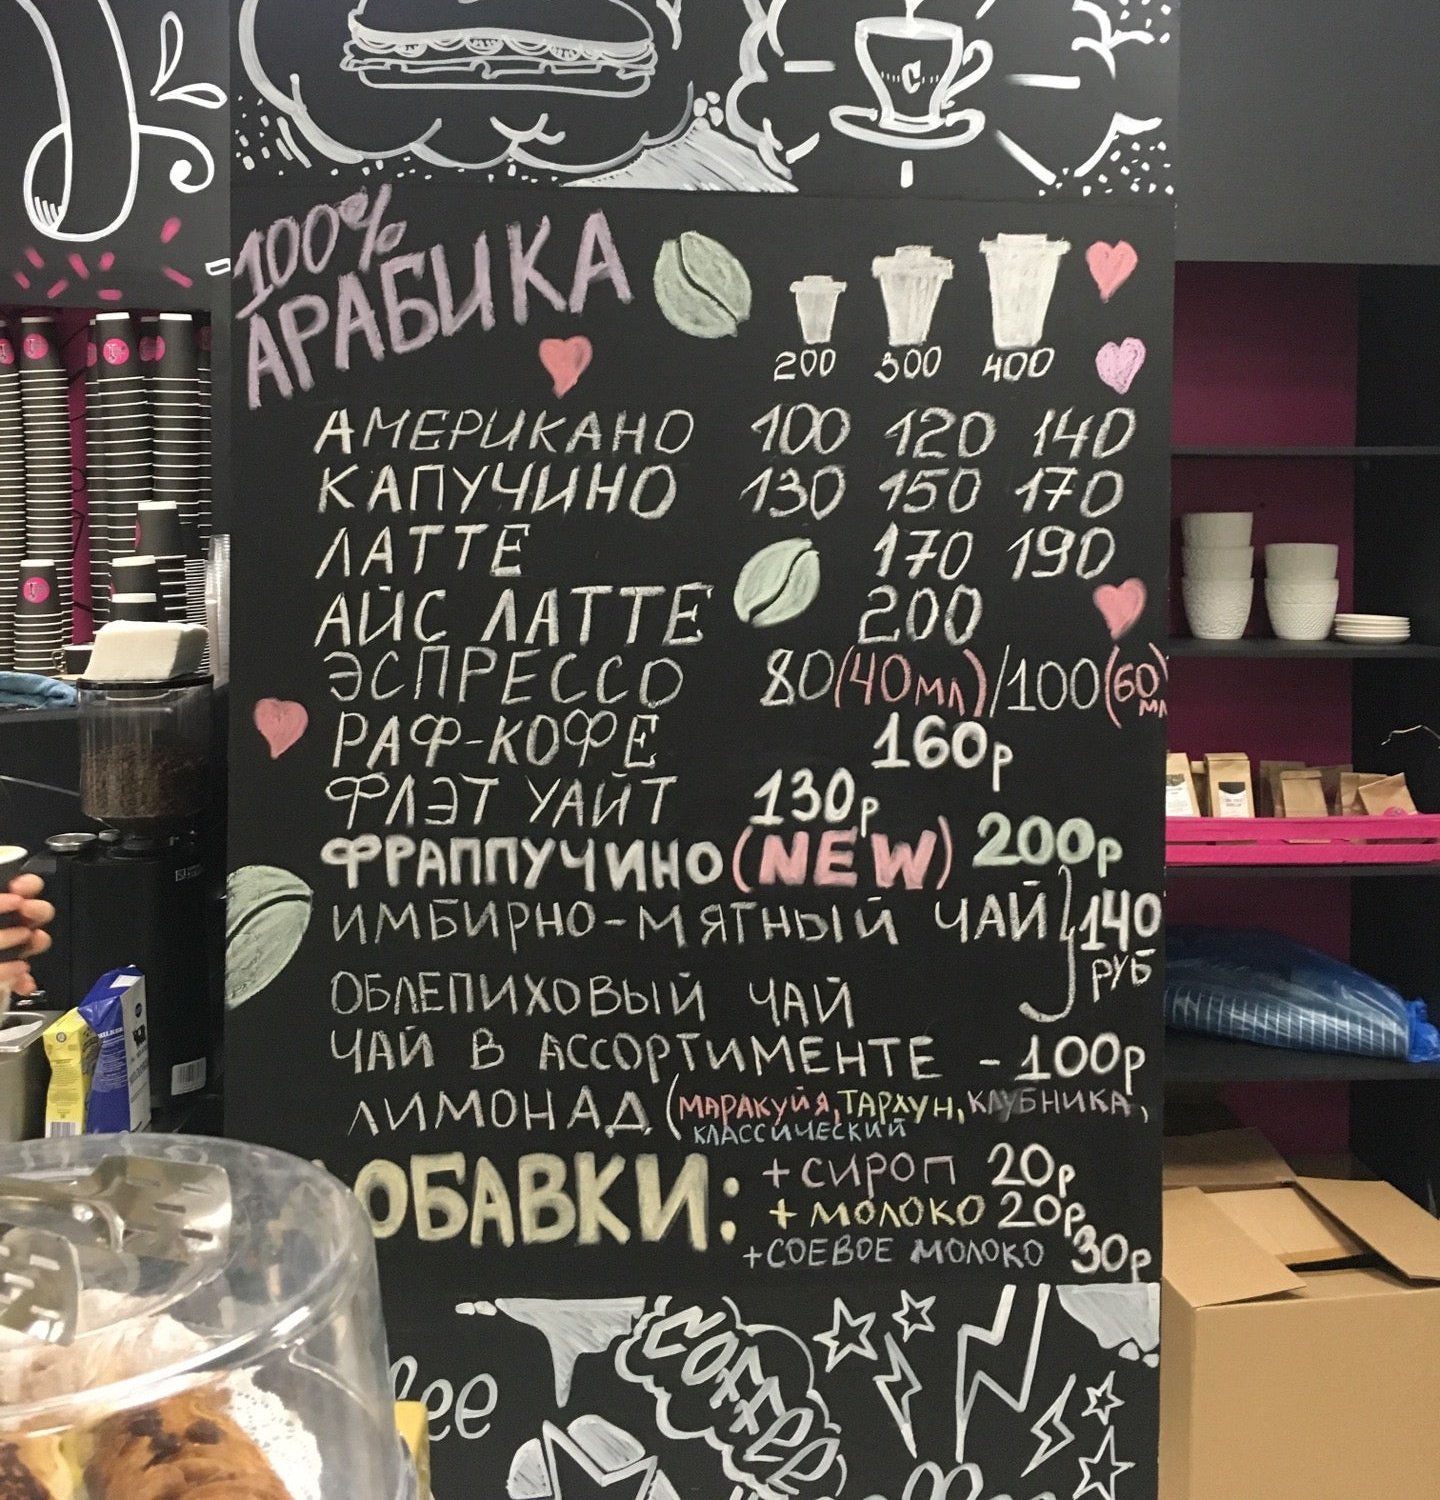 100%
АРАБИКА
200 300 400
АМЕРИКАНО 100 120 140
КАПУЧИНО 130 150 170
ЛАТТЕ 170 190
АЙС ЛАТТЕ 200
ЭСПРЕССО 80(40мл)/100(60мл
РАФ-КОФЕ 160р
ФЛЭТ УАЙТ 130р
ФРАППУЧИНО(NEW) 200р
ИМБИРНО-МЯТНЫЙ ЧАЙ } 140
РУБ
ОБЛЕПИХОВЫЙ ЧАЙ
ЧАЙ В АССОРТИМЕНТЕ - 100р
ЛИМОНАД (МАРАКУЙЯ, ТАРХУН, КЛУБНИКА,
КЛАССИЧЕСКИЙ
ОБАВКИ: +СИРОП 20р
+ МОЛОКО 20р
+СОЕВОЕ МОЛОКО 30р
COFFEE